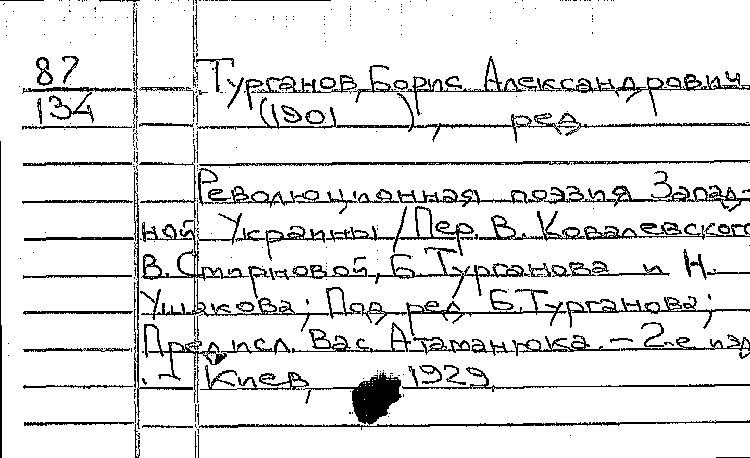 87 Турганов, Борис Александрович
134 (1901 ), ред
Революционная поэзия Запад-
ной Украины / Пер. В. Ковалевского
В. Смирновой, Б. Турганова и Н.
Ушакова; Под ред. Б. Турганова;
Предисл. Вас. Атаманюка. – 2-е изд
. Киев, 1929.